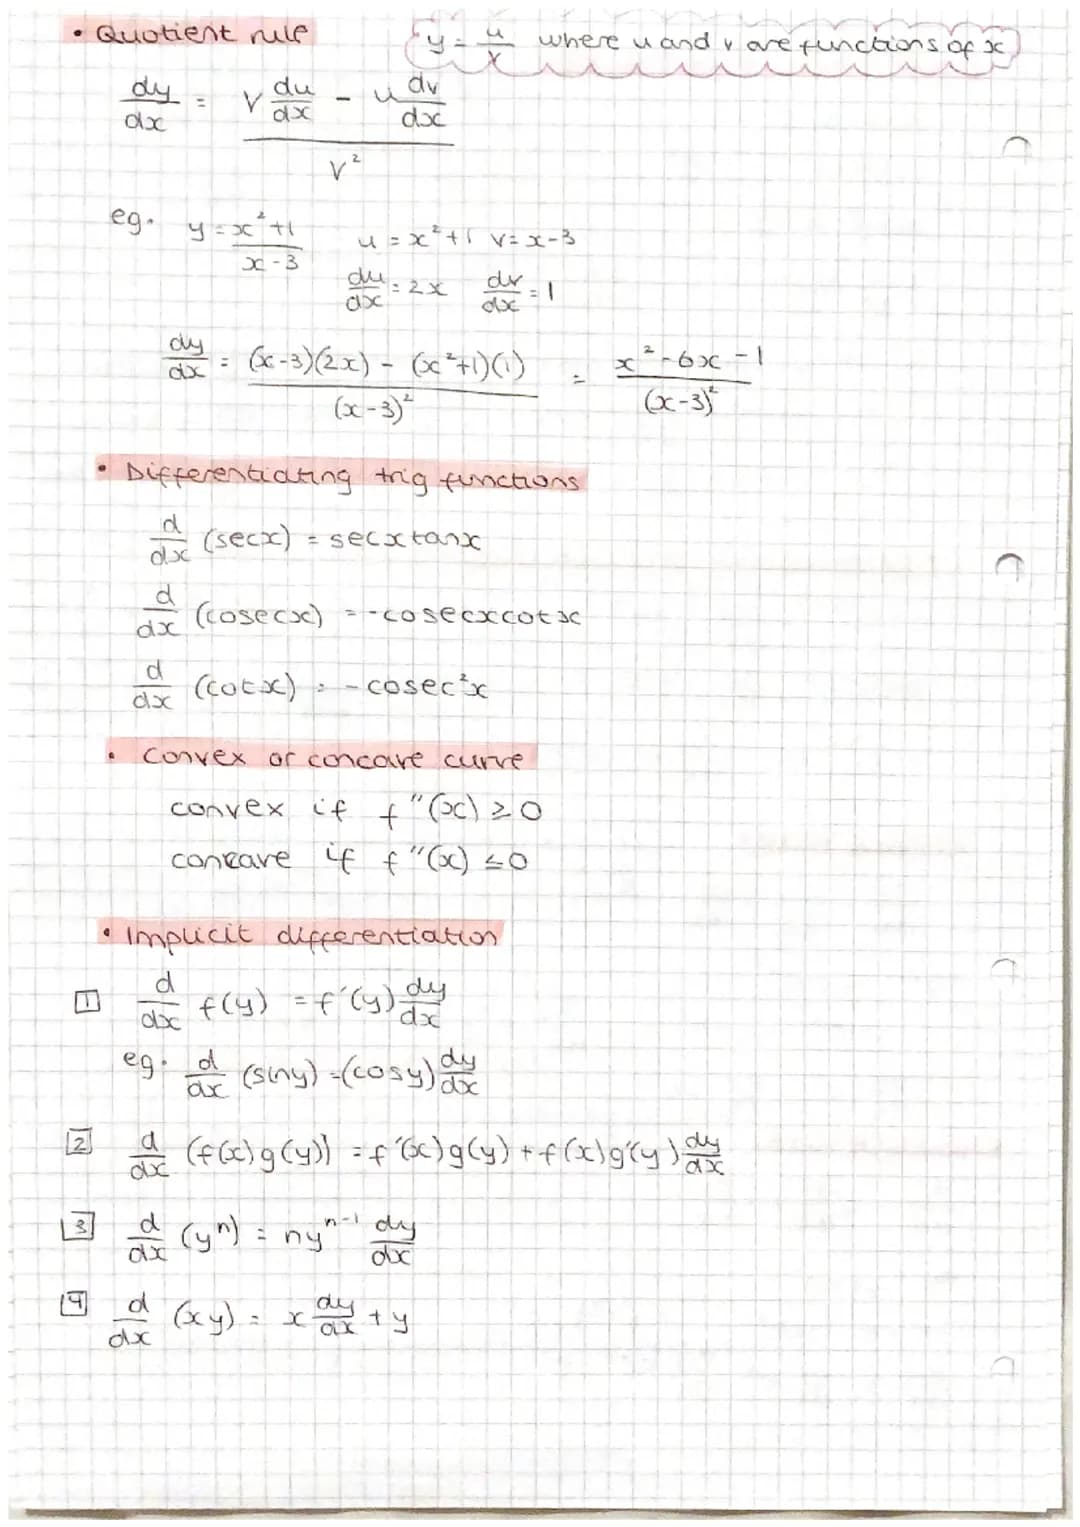 • Quotient rule
y = u/v where u and v are functions of x
dy/dx = (v du/dx - u dv/dx)/v²
eg. y = (x²+1)/(x-3) u = x²+1 v = x-3
du/dx = 2x dv/dx = 1
dy/dx = ((x-3)(2x) - (x²+1)(1))/(x-3)² = (x²-6x-1)/(x-3)²
• Differentiating trig functions
d/dx (secx) = secxtanx
d/dx (cosecx) = -cosecxcotx
d/dx (cotx) = -cosec²x
• Convex or concave curve
convex if f''(x) ≥ 0
concave if f''(x) ≤ 0
• Implicit differentiation
1 d/dx f(y) = f'(y) dy/dx
eg. d/dx (siny) = (cosy) dy/dx
2 d/dx (f(x)g(y)) = f'(x)g(y) + f(x)g'(y) dy/dx
3 d/dx (yⁿ) = nyⁿ⁻¹ dy/dx
4 d/dx (xy) = x dy/dx + y